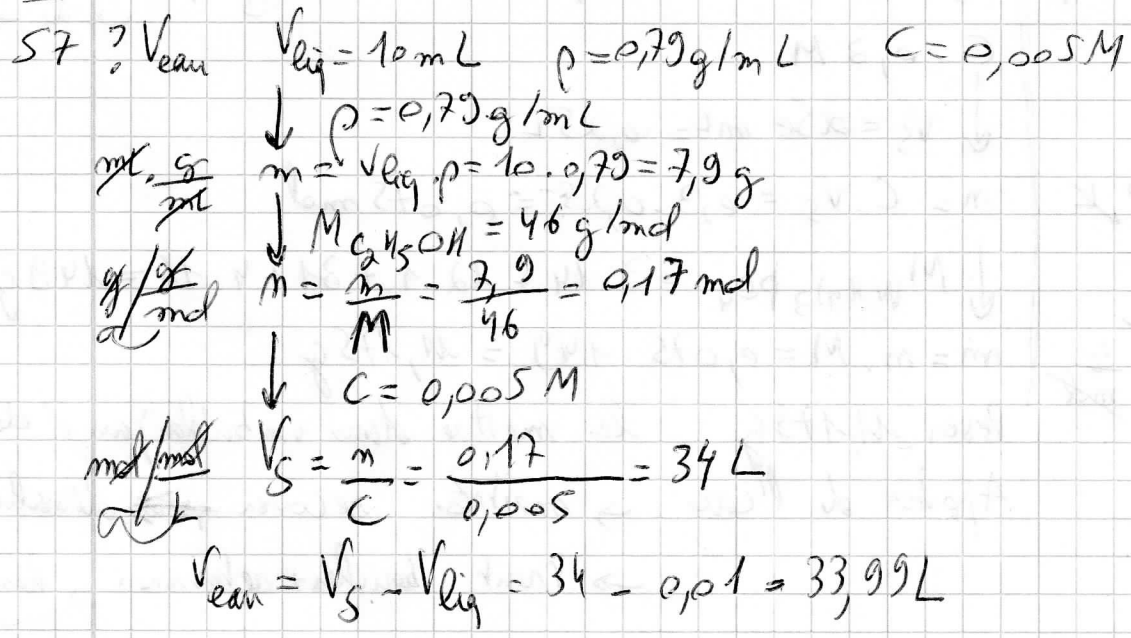 57 ? Veau Vliq = 10 mL ρ = 0,79 g/mL C = 0,005 M
↓ ρ = 0,79 g/mL
mL . g/mL m = Vliq . ρ = 10 . 0,79 = 7,9 g
↓ M C2H5OH = 46 g/mol
g/g/mol n = m/M = 7,9/46 = 0,17 mol
↓ C = 0,005 M
mol/mol/L VS = n/C = 0,17/0,005 = 34 L
Veau = VS - Vliq = 34 - 0,01 = 33,99 L